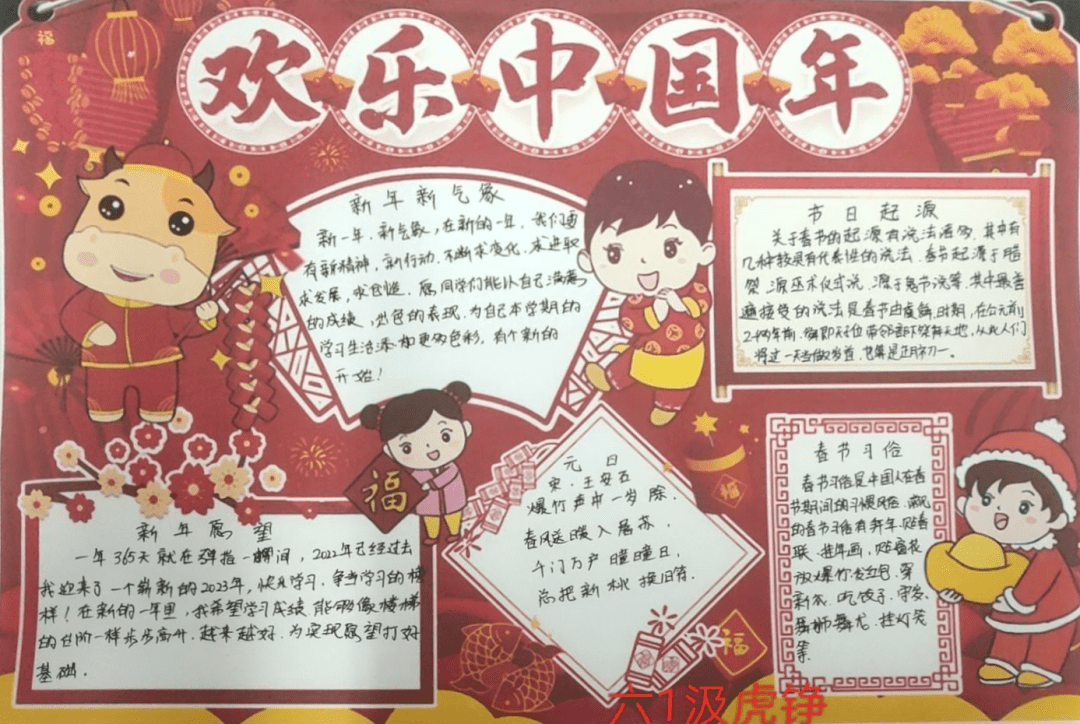 欢乐中国年
福
新年新气象
新一年,新气象,在新的一年,我们要
有新精神,新行动,不断求变化,求进取
求发展,求创造.愿同学们能以自己满意
的成绩,出色的表现,为自己本学期的
学习生活添加更多色彩,有个新的
开始!
节日起源
关于春节的起源有说法很多,其中有
几种较具有代表性的说法.春节起源于腊
祭,源巫术仪式说,源于鬼节说等,其中最普
遍接受的说法是春节由虞舜时期,在公元前
2000年前,舜即天子位,带领部下祭拜天地,从此人们
将这一天当做岁首,也算是正月初一。
新年愿望
一年365天就在弹指一瞬间,2022年已经过去
我迎来了一个崭新的2023年,快乐学习,争当学习的榜
样!在新的一年里,我希望学习成绩能够像楼梯
的台阶一样步步高升,越来越好.为实现愿望打好
基础.
福
元日
宋.王安石
爆竹声中一岁除,
春风送暖入屠苏,
千门万户曈曈日,
总把新桃换旧符.
福
春节习俗
春节习俗是中国人在春
节期间的习惯风俗,
的春节习俗有拜年,贴春
联,挂年画,贴窗花
放爆竹,发红包,穿
新衣,吃饺子,守岁,
舞狮舞龙,挂灯笼
等.
六1汲虎铮